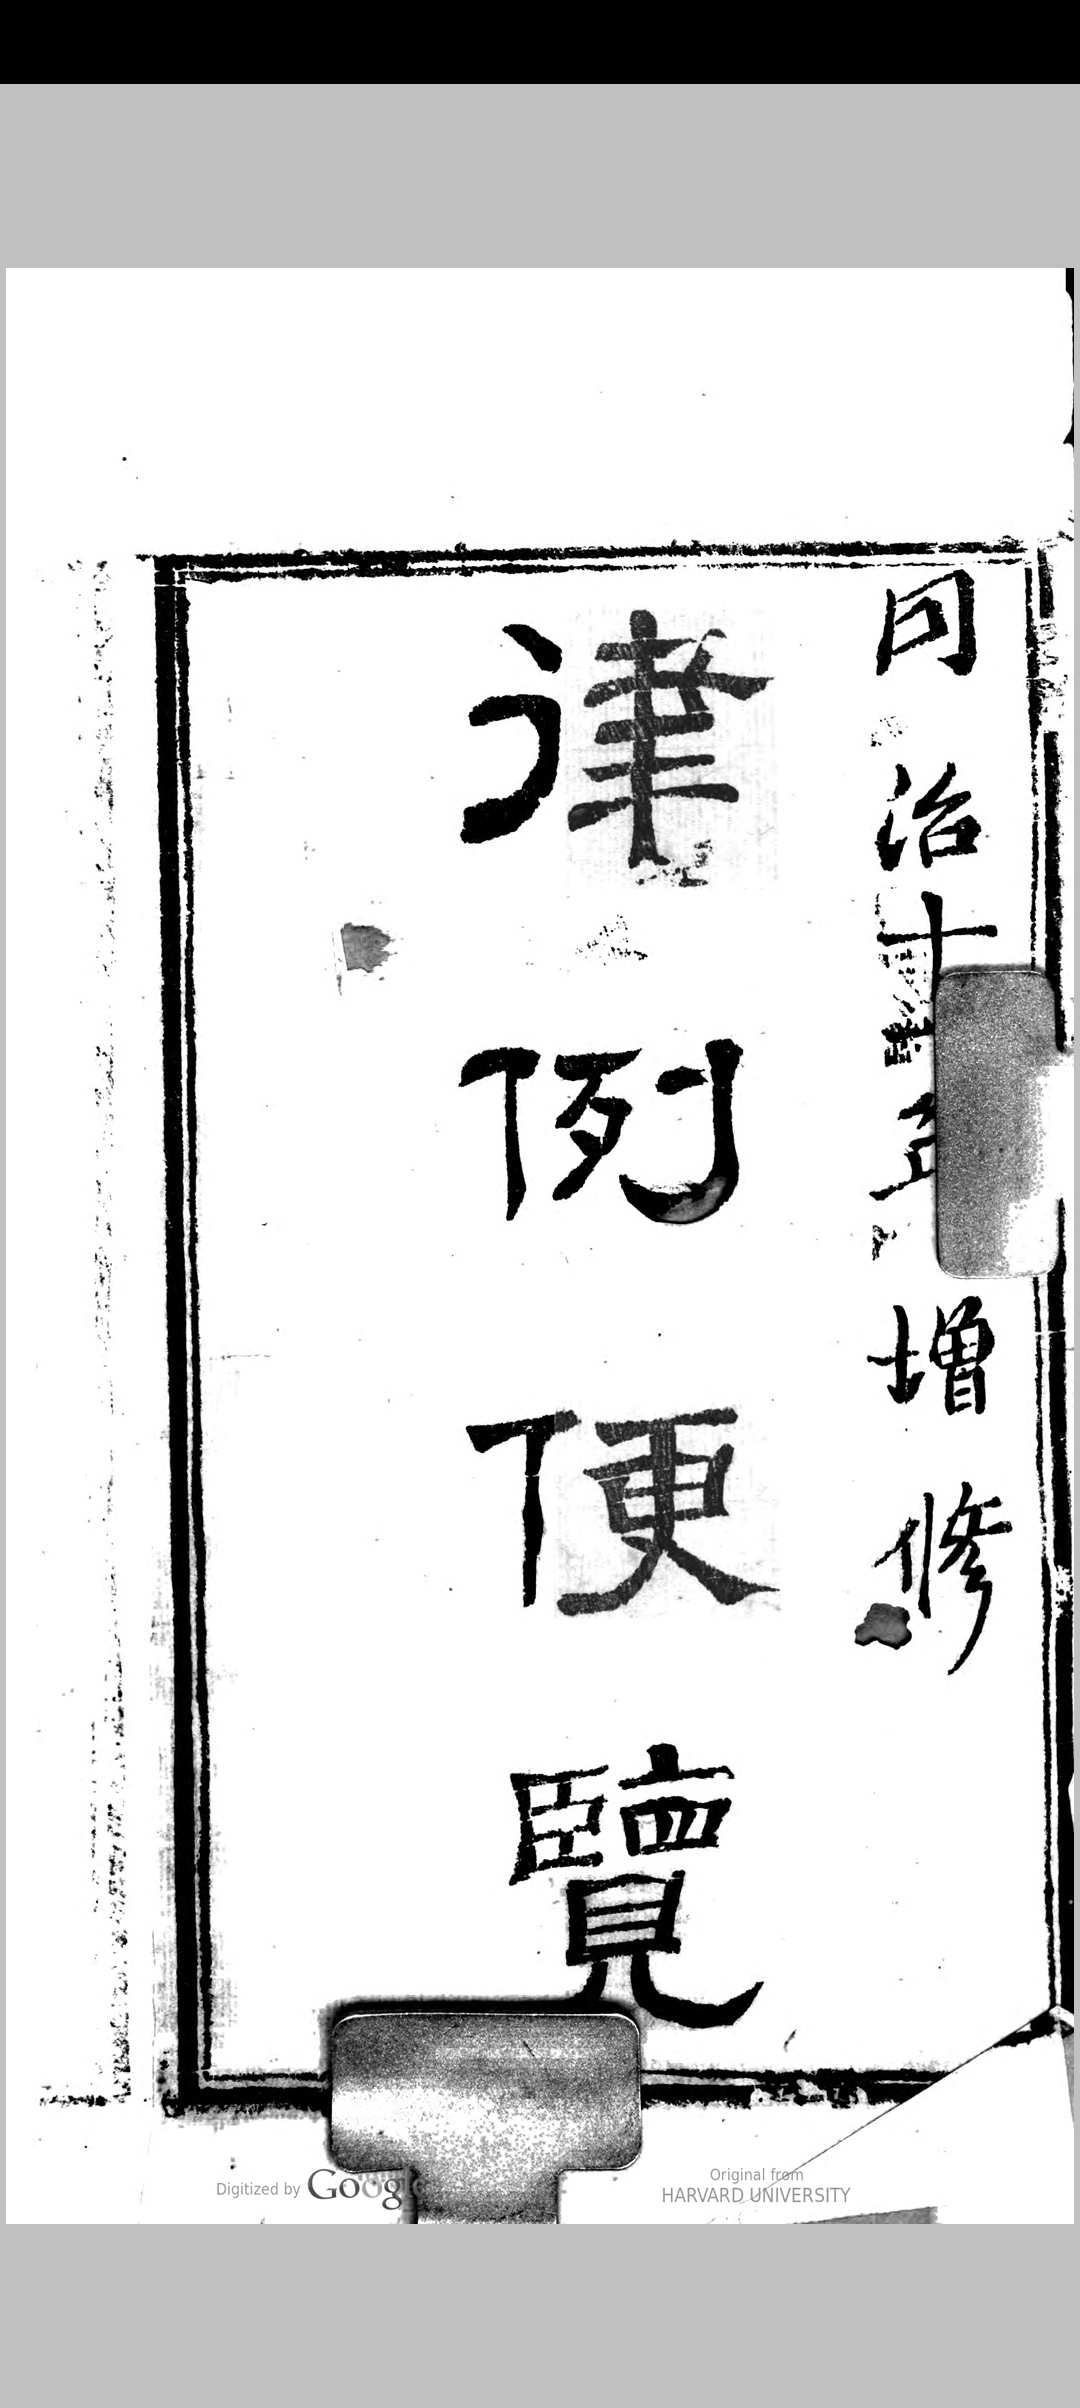 同治十年增修
律例便覽
Digitized by Google
Original from
HARVARD UNIVERSITY